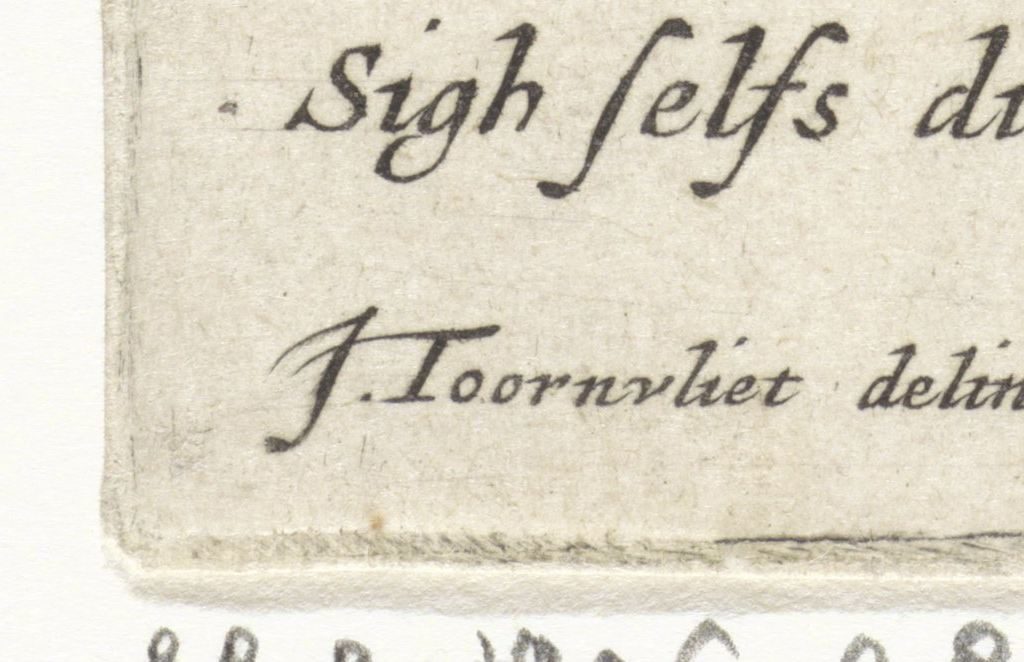 Sigh ſelfs
J. Toornvliet delin